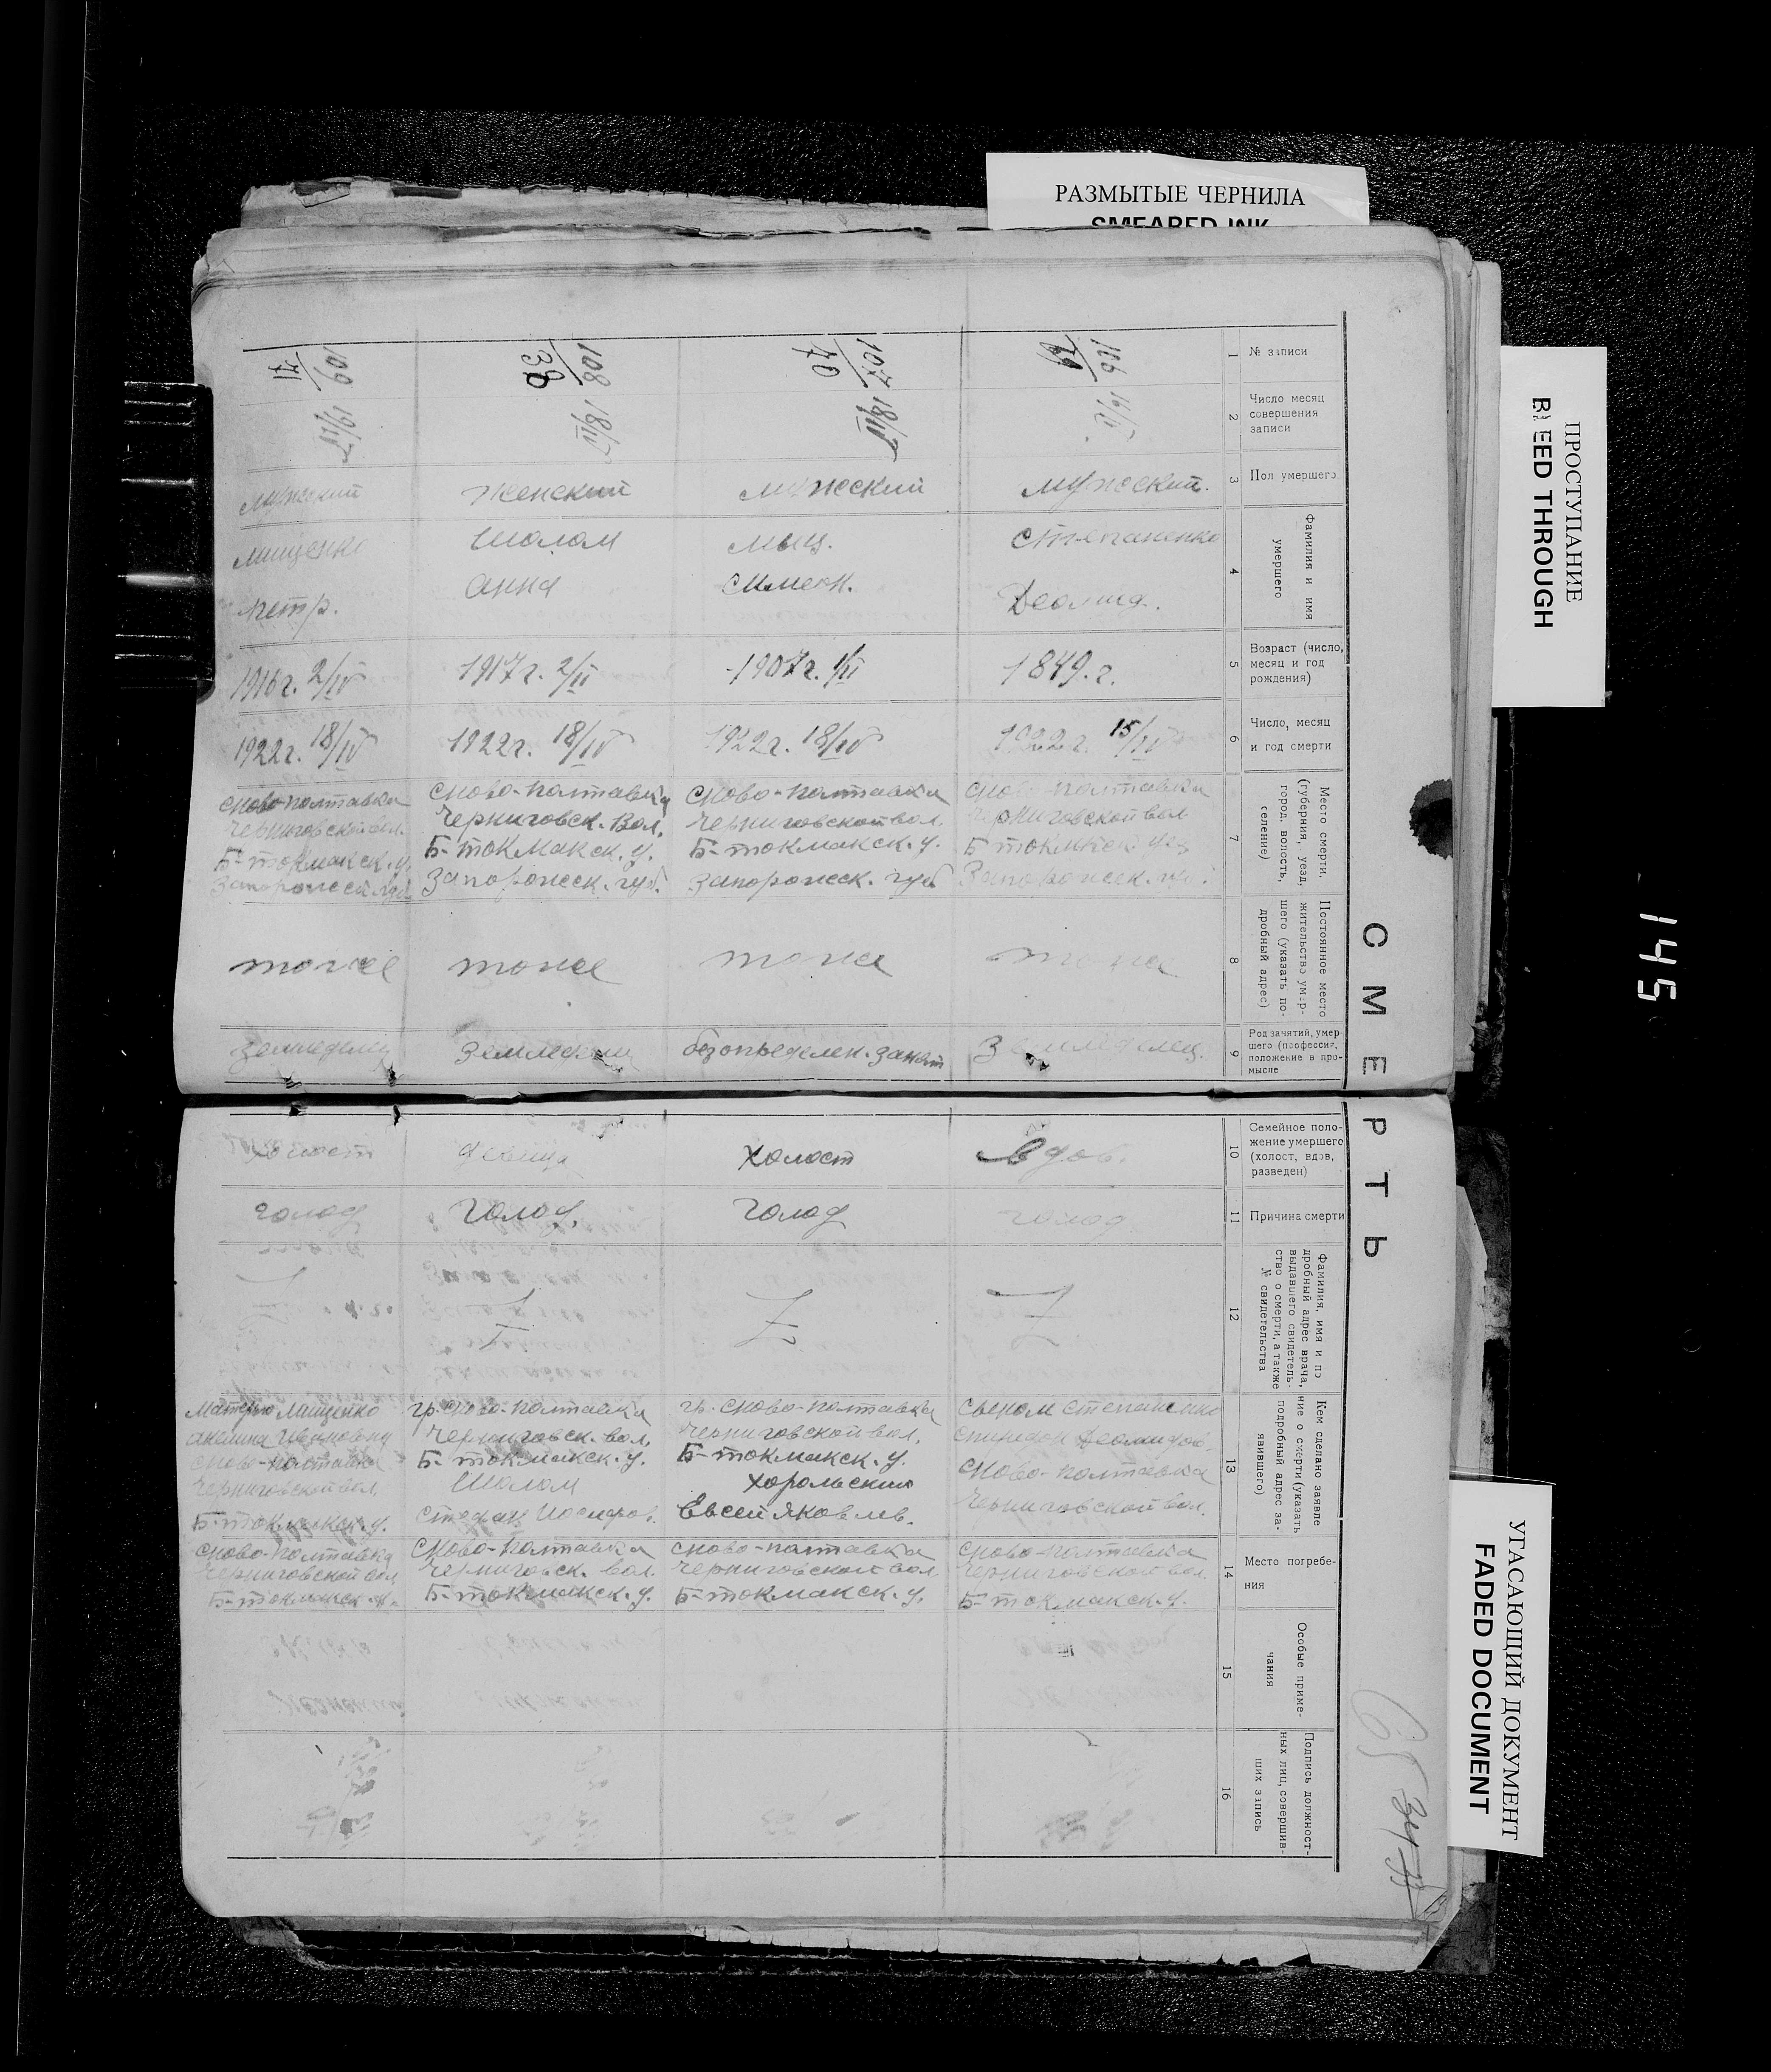 РАЗМЫТЫЕ ЧЕРНИЛА
SMEARED INK
ПРОСТУПАНИЕ
BLEED THROUGH
145
УГАСАЮЩИЙ ДОКУМЕНТ
FADED DOCUMENT
СМЕРТЬ
1
№ записи
2
Число месяц
совершения
записи
3
Пол умершего
4
Фамилия и имя
умершего
5
Возраст (число,
месяц и год
рождения)
6
Число, месяц
и год смерти
7
Место смерти,
(губерния, уезд,
город, волость,
селение)
8
Постоянное место
жительство умер-
шего (указать по-
дробный адрес)
9
Род занятий, умер-
шего (профессия,
положение в про-
мысле
10
Семейное поло-
жение умершего
(холост, вдов,
разведен)
11
Причина смерти
12
Фамилия, имя и по
дробный адрес врача,
выдавшего свидетель-
ство о смерти, а также
№ свидетельства
13
Кем сделано заявле
ние о смерти (указать
подробный адрес за-
явившего)
14
Место погребе-
ния
15
Особые приме-
чания
16
Подпись должност-
ных лиц, совершив-
ших запись
106
69
16/IV
Мужеский.
Степаненко
Деомид.
1849. г.
1922 г. 15/IV
Ново-Полтавка
Черниговской вол
Б Токмкск уез
Запорожск. губ.
тоже
Земледелец.
Вдов.
голод
Z
Сыном Степаненко
Спиридон Деомидов.
Ново-Полтавка
Черниговской вол.
Ново-Полтавка
Черниговской вол.
Б-Токмакск. у.
107
70
18/IV
Мужеский
Мыц.
Симеон.
1907 г. 1/II
1922 г. 18/IV
Ново-Полтавка
Черниговской вол.
Б-Токмакск. у.
Запорожск. губ
тоже
без опьеделен. занят
Холост
Голод
Z
гр. Ново-Полтавка
Черниговской вол.
Б-Токмакск. у.
Хорольским
Евсей Яковлв.
Ново-Полтавка
Черниговской вол
Б-Токмакск. у.
108
38
18/IV
Женский
Шалам
Анна
1917 г. 2/II
1922 г. 18/IV
Ново-Полтавка
Черниговск. Вол.
Б-Токмакск. у.
Запорожск. губ.
тоже
Земледелец
девица
Голод.
Z
гр. Ново-Полтавка
Черниговск. вол.
Б-Токмакск. у.
Шалам
Стефан Иосифов.
Ново-Полтавка
Черниговск. вол.
Б-Токмакск. у.
109
71
19/IV
Мужеский
Мищенко
Петр.
1916 г. 2/IV
1922 г. 18/IV
Ново-Полтавка
Черниговской вол.
Б-Токмакск. у.
Запорожск губ
тоже
Земледелец
Холост
голод
Z
Матерью Мищенко
Ново-Полтавка
Черниговской вол
Б-Токмакск. у.
Ново-Полтавка
Черниговской вол
Б-Токмакск у.